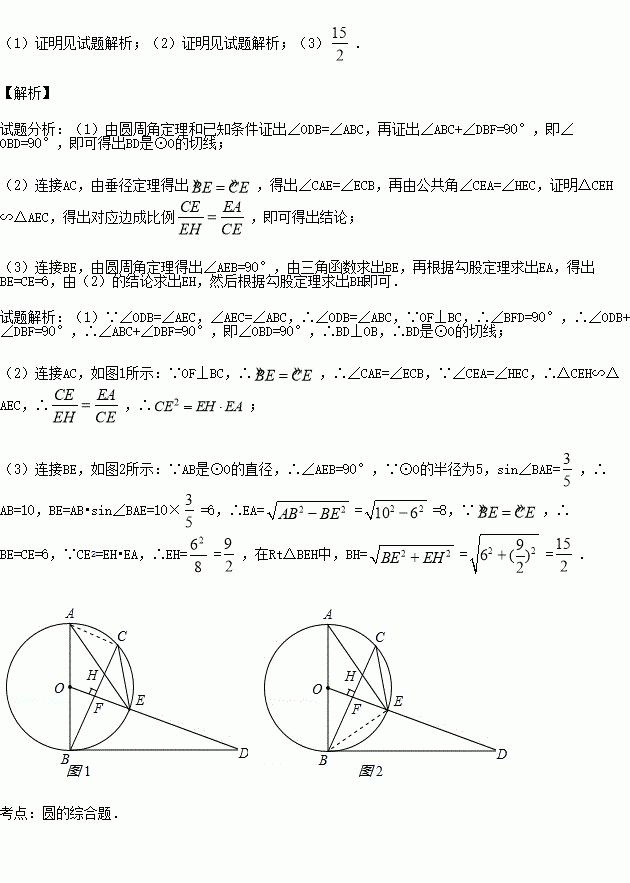 (1)证明见试题解析;(2)证明见试题解析;(3)15/2.
【解析】
试题分析:(1)由圆周角定理和已知条件证出∠ODB=∠ABC,再证出∠ABC+∠DBF=90°,即∠
OBD=90°,即可得出BD是⊙O的切线;
(2)连接AC,由垂径定理得出BE=CE,得出∠CAE=∠ECB,再由公共角∠CEA=∠HEC,证明△CEH
∽△AEC,得出对应边成比例CE/EH=EA/CE,即可得出结论;
(3)连接BE,由圆周角定理得出∠AEB=90°,由三角函数求出BE,再根据勾股定理求出EA,得出
BE=CE=6,由(2)的结论求出EH,然后根据勾股定理求出BH即可.
试题解析:(1)∵∠ODB=∠AEC,∠AEC=∠ABC,∴∠ODB=∠ABC,∵OF⊥BC,∴∠BFD=90°,∴∠ODB+
∠DBF=90°,∴∠ABC+∠DBF=90°,即∠OBD=90°,∴BD⊥OB,∴BD是⊙O的切线;
(2)连接AC,如图1所示:∵OF⊥BC,∴BE=CE,∴∠CAE=∠ECB,∵∠CEA=∠HEC,∴△CEH∽△
AEC,∴CE/EH=EA/CE,∴CE²=EH·EA;
(3)连接BE,如图2所示:∵AB是⊙O的直径,∴∠AEB=90°,∵⊙O的半径为5,sin∠BAE=3/5,∴
AB=10,BE=AB•sin∠BAE=10×3/5=6,∴EA=√(AB²−BE²)=√(10²−6²)=8,∵BE=CE,∴
BE=CE=6,∵CE²=EH•EA,∴EH=6²/8=9/2,在Rt△BEH中,BH=√(BE²+EH²)=√(6²+(9/2)²)=15/2.
A
C
H
O
F
E
B
D
图1
A
C
H
O
F
E
B
D
图2
考点:圆的综合题.